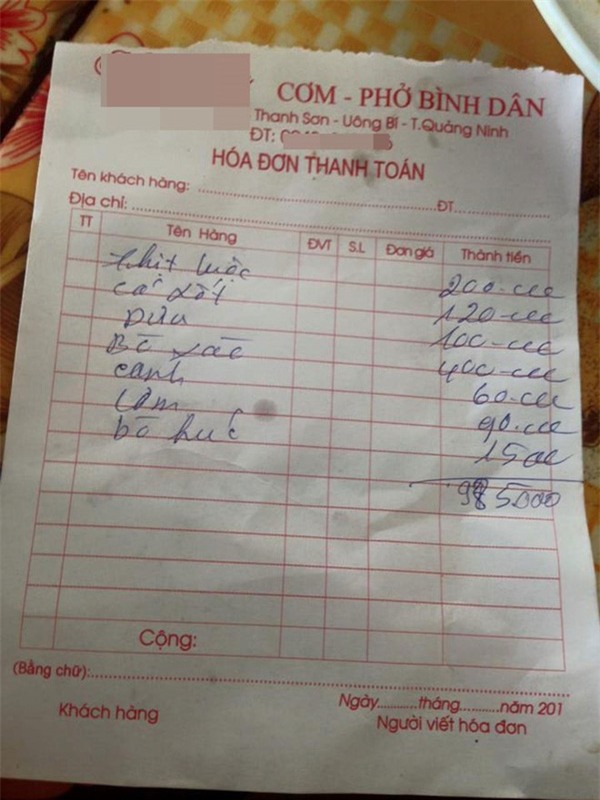 CƠM - PHỞ BÌNH DÂN
Thanh Sơn - Uông Bí - T.Quảng Ninh
ĐT:
HÓA ĐƠN THANH TOÁN
Tên khách hàng: ĐT
Địa chỉ:
TT Tên Hàng ĐVT S.L Đơn giá Thành tiền
thịt luộc 200.000
cá sốt 120.000
Dưa 100.000
Bò xào 400.000
canh 60.000
cơm 90.000
bò húc 15000
985000
Cộng:
(Bằng chữ):
Ngày tháng năm 201
Khách hàng Người viết hóa đơn